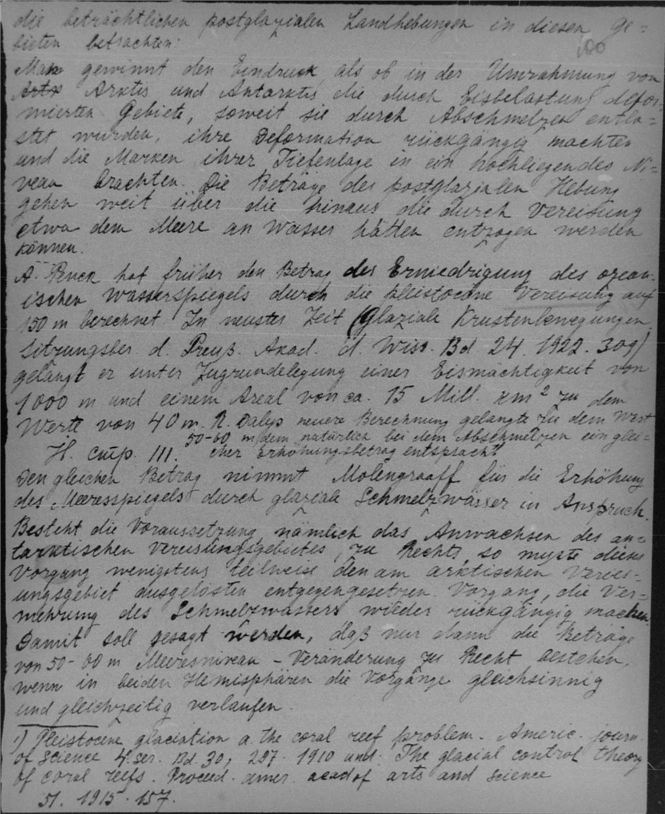 die beträchtlichen postglazialen Landhebungen in diesen Ge-
bieten betrachten.
100
Man gewinnt den Eindruck als ob in der Umrahmung von
Arktis und Antarktis die durch Eisbelastung defor-
mierten Gebiete, soweit sie durch Abschmelzen entla-
stet wurden, ihre Deformation rückgängig machten
und die Marken ihrer Tiefenlage in ein hochliegendes Ni-
veau brachten. Die Beträge der postglazialen Hebung
gehen weit über die hinaus die durch Vereisung
etwa dem Meere an Wasser hätten entzogen werden
können.
A. Penck hat früher den Betrag der Erniedrigung des ozean-
ischen Wasserspiegels durch die pleistocäne Vereisung auf
150 m berechnet. In neuster Zeit (Glaziale Krustenbewegungen
Sitzungsber d. Preuß. Akad. d. Wiss. Bd. 24. 1922. 309)
gelangt er unter Zugrundelegung einer Eismächtigkeit von
1000 m und einem Areal von ca. 15 Mill. km² zu dem
Werte von 40 m. R. Dalys neuere Berechnung gelangte zu dem Wert
50-60 m, dem natürlich bei dem Abschmelzen ein glei-
cher Erhöhungsbetrag entspracht
III.
Den gleichen Betrag nimmt Molengraaff für die Erhöhung
des Meeresspiegels durch glaziale Schmelzwässer in Anspruch.
Besteht die Voraussetzung nämlich das Anwachsen des an-
tarktischen Vereisungsgebietes, zu Rechts, so myste dieser
Vorgang wenigstens teilweise den am arktischen Verei-
sungsgebiet ausgelösten entgegengesetzen Vorgang, die Ver-
mehrung des Schmelzwassers wieder rückgängig machen.
Damit soll gesagt werden, daß nur dann die Beträge
von 50-60 m Meeresniveau-Veränderung zu Recht bestehen,
wenn in beiden Hemisphären die Vorgänge gleichsinnig
und gleichzeitig verlaufen.
1) Pleistocene glaciation a the coral reef problem. Americ. journ.
of Science 4. ser. Bd. 30, 297. 1910 und: The glacial control theory
of coral reefs. Proceed. amer. acad of arts and science
51. 1915. 157.